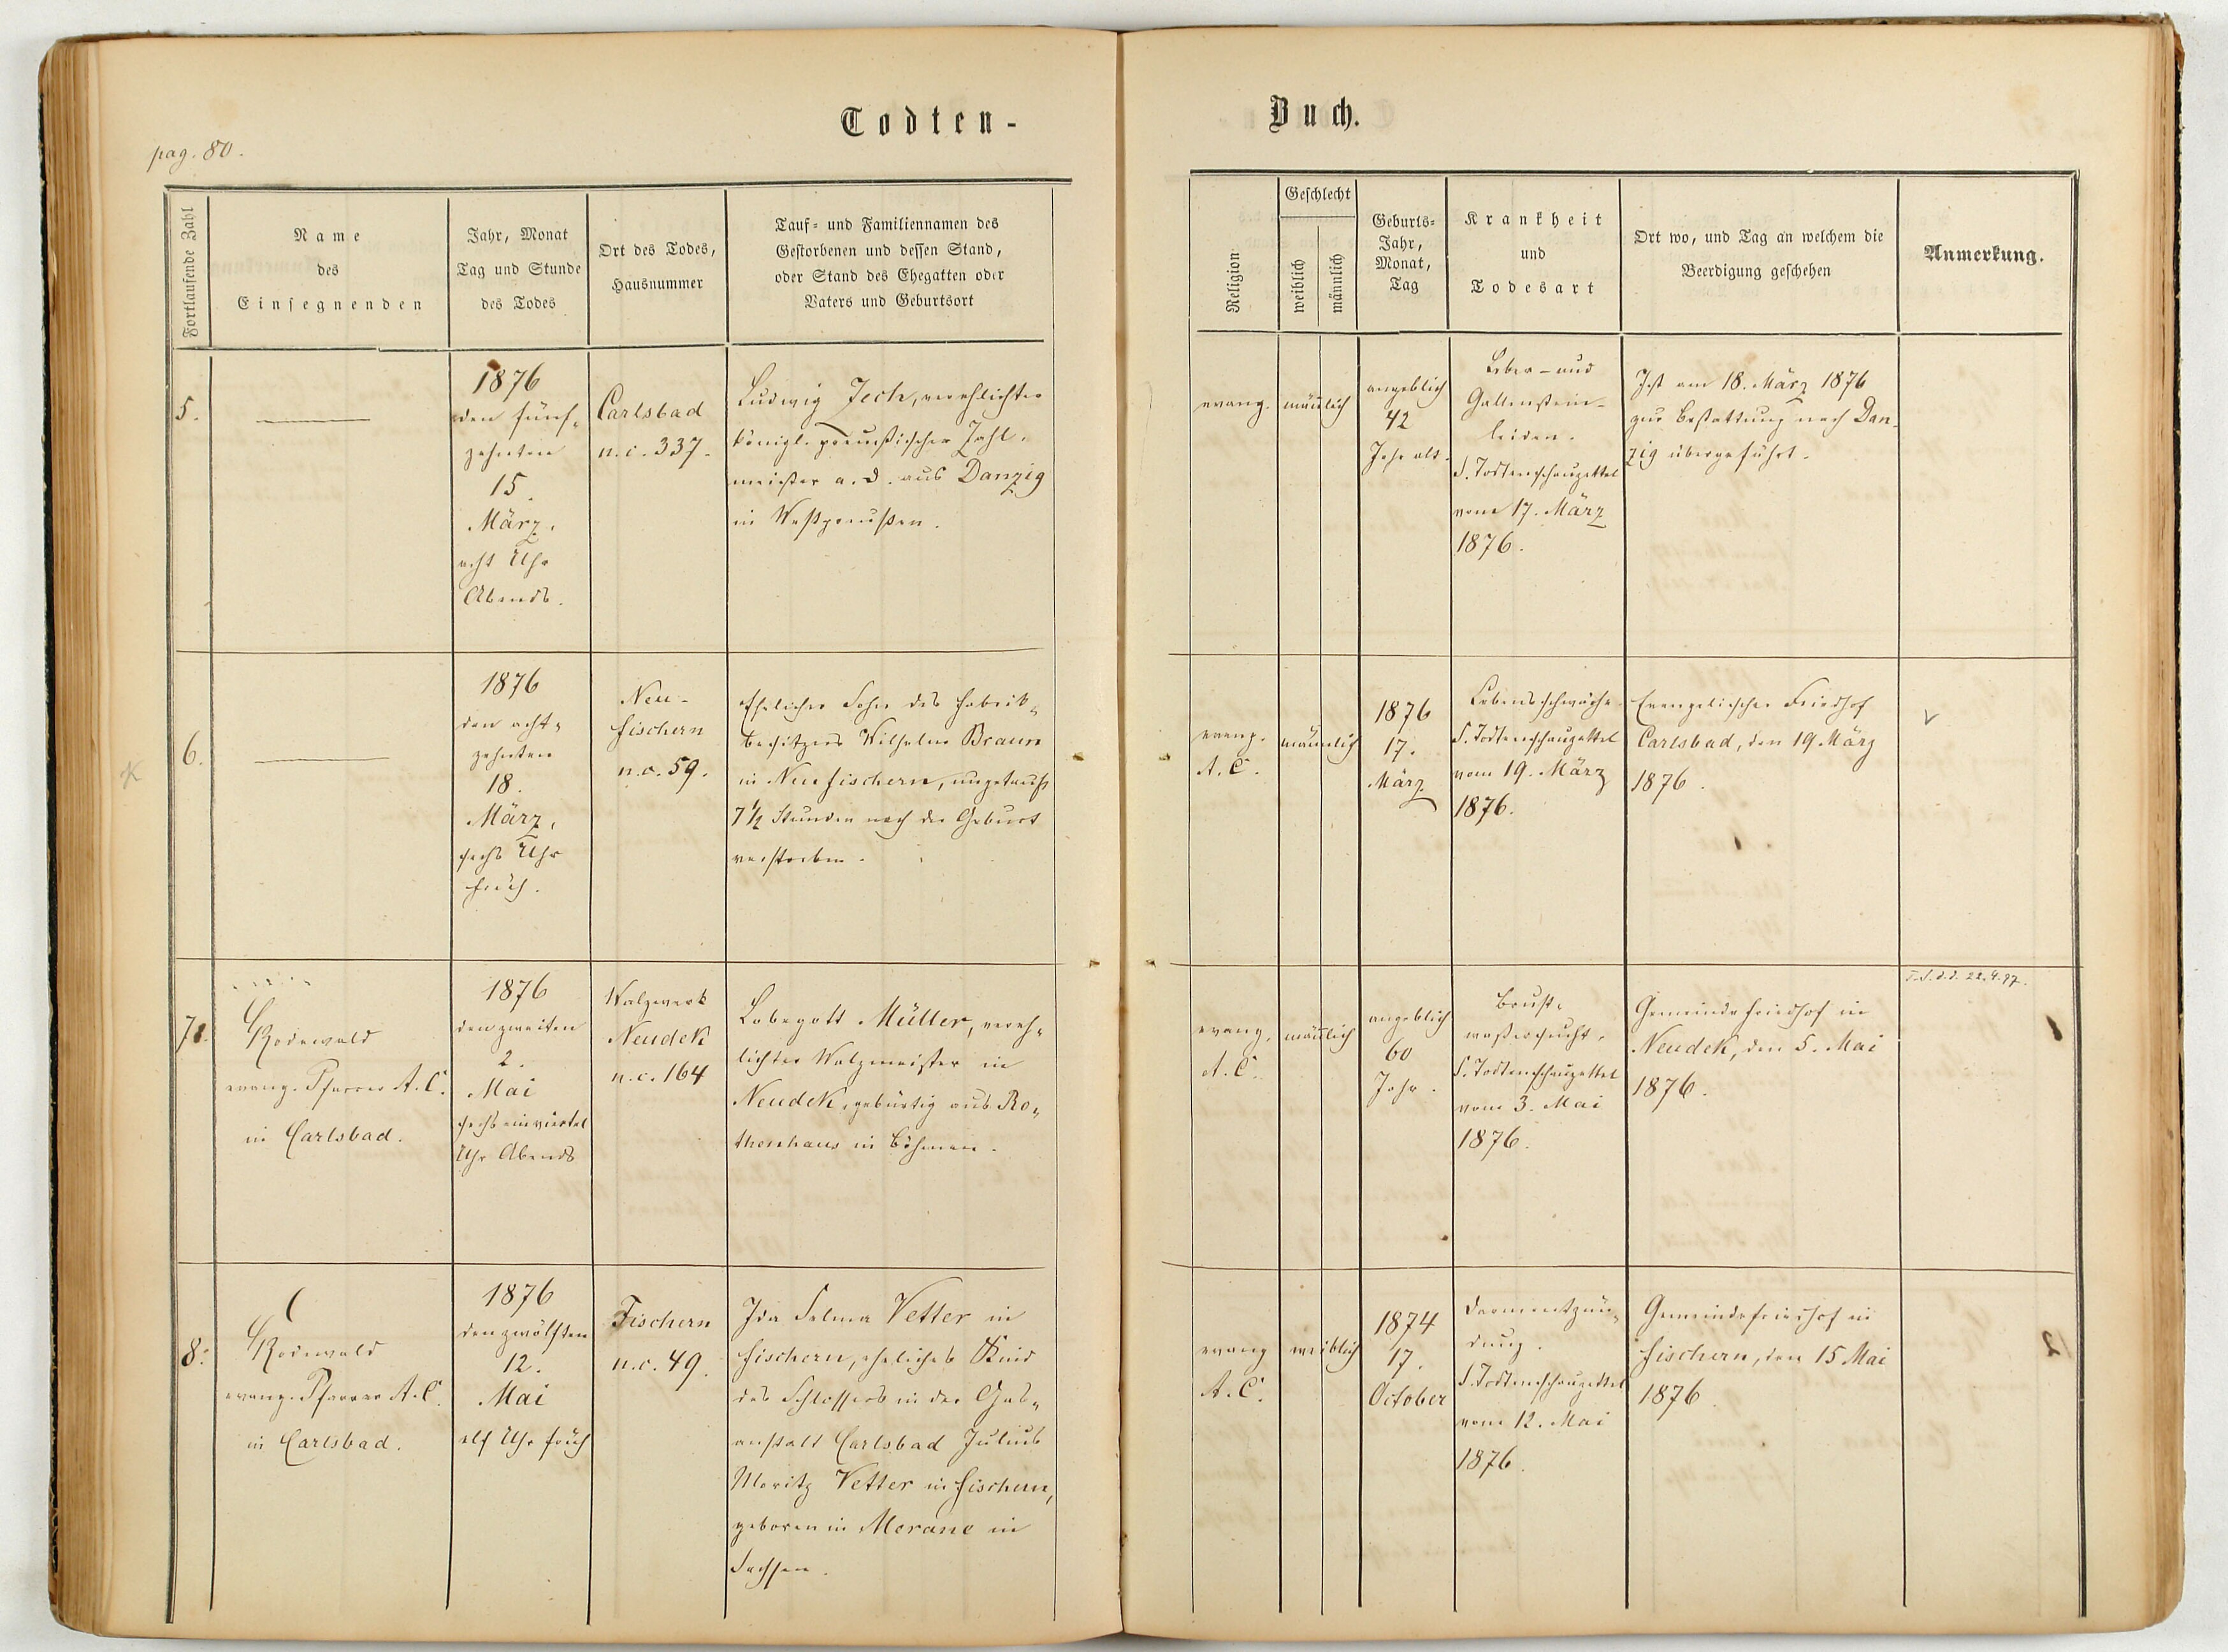 pag. 80.
Todten-
Buch.
Fortlaufende Zahl
Name
des
Einsegnenden
Jahr, Monat
Tag und Stunde
des Todes
Ort des Todes,
Hausnummer
Tauf- und Familiennamen des
Gestorbenen und dessen Stand,
oder Stand des Ehegatten oder
Vaters und Geburtsort
Religion
Geschlecht
weiblich
männlich
Geburts-
Jahr,
Monat,
Tag
Krankheit
und
Todesart
Ort wo, und Tag an welchem die
Beerdigung geschehen
Anmerkung.
5.
1876
den fünf-
zehnten
15.
März,
acht Uhr
Abends.
Carlsbad
n. c. 337.
Ludwig Jech, verehlichter
königl. preußischer Zahl-
meister a. D. aus Danzig
in Westpreußen.
evang.
männlich
angeblich
42
Jahr alt.
Leber- und
Gallenstein-
leiden.
S. Todtenschauzettel
vom 17. März
1876.
Ist am 18. März 1876
zur Bestattung nach Dan-
zig übergeführt.
6.
1876
den acht-
zehnten
18.
März,
sechs Uhr
früh.
Neu-
fischern
n. c. 59.
Ehelicher Sohn des Fabrik-
besitzers Wilhelm Braun
in Neufischern, ungetauft
7 1/2 Stunden nach der Geburt
verstorben.
evang.
A. C.
männlich
1876
17.
März
Lebensschwäche.
S. Todtenschauzettel
vom 19. März
1876.
Evangelischer Friedhof
Carlsbad, den 19. März
1876.
7.
Rodewald
evang. Pfarrer A. C.
in Carlsbad.
1876
den zweiten
2.
Mai
sechs einviertel
Uhr Abends
Walzwerk
Neudek
n. c. 164
Lobegott Müller, vereh-
lichter Walzmeister in
Neudek, gebürtig aus Ro-
thenhaus in Böhmen.
evang.
A. C.
männlich
angeblich
60
Jahr.
Brust-
wassersucht.
S. Todtenschauzettel
vom 3. Mai
1876.
Gemeindefriedhof in
Neudek, den 5. Mai
1876.
22.4.97.
8.
Rodewald
evang. Pfarrer A. C.
in Carlsbad.
1876
den zwölften
12.
Mai
elf Uhr früh
Fischern
n. c. 49.
Ida Selma Vetter in
Fischern, eheliches Kind
des Schlossers in der Gas-
anstalt Carlsbad Julius
Moritz Vetter in Fischern,
geboren in Merane in
Sachsen.
evang
A. C.
weiblich
1874
17.
October
Darmentzün-
dung.
S. Todtenschauzettel
vom 12. Mai
1876.
Gemeindefriedhof in
Fischern, den 15 Mai
1876.